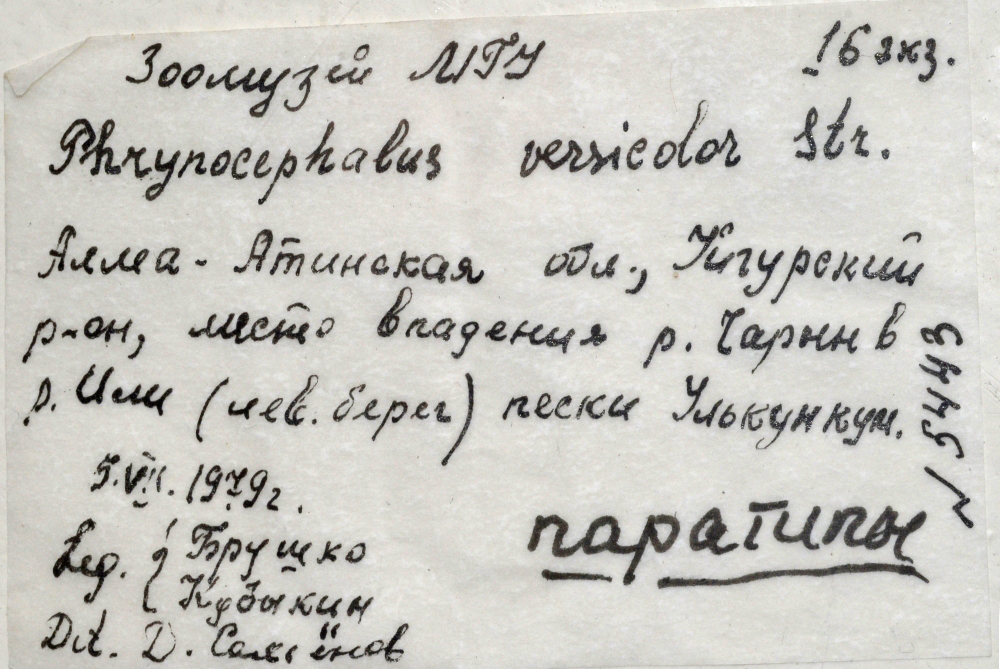 Зоомузей МГУ 16 экз.
Phrynocephalus versicolor Str.
Алма-Атинская обл., Уйгурский
р-он, место впадения р. Чарын в
р. Или (лев. берег) пески Улькункум.
5.VII.1979г.
паратипы
Leg. { Брушко
Кубыкин
Det. D. Семёнов
N 5444